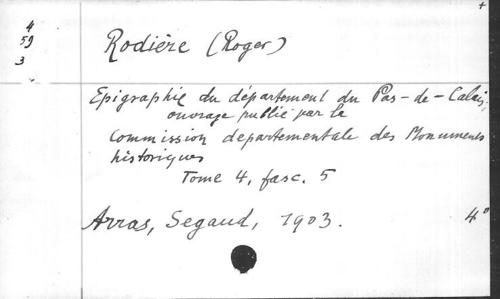 4
59
3
Rodière (Roger)
Epigraphie du département du Pas-de-Calais,
ouvrage publié par la
Commission départementale des Monuments
historiques
Tome 4, fasc. 5
Arras, Segaud, 1903.
4°